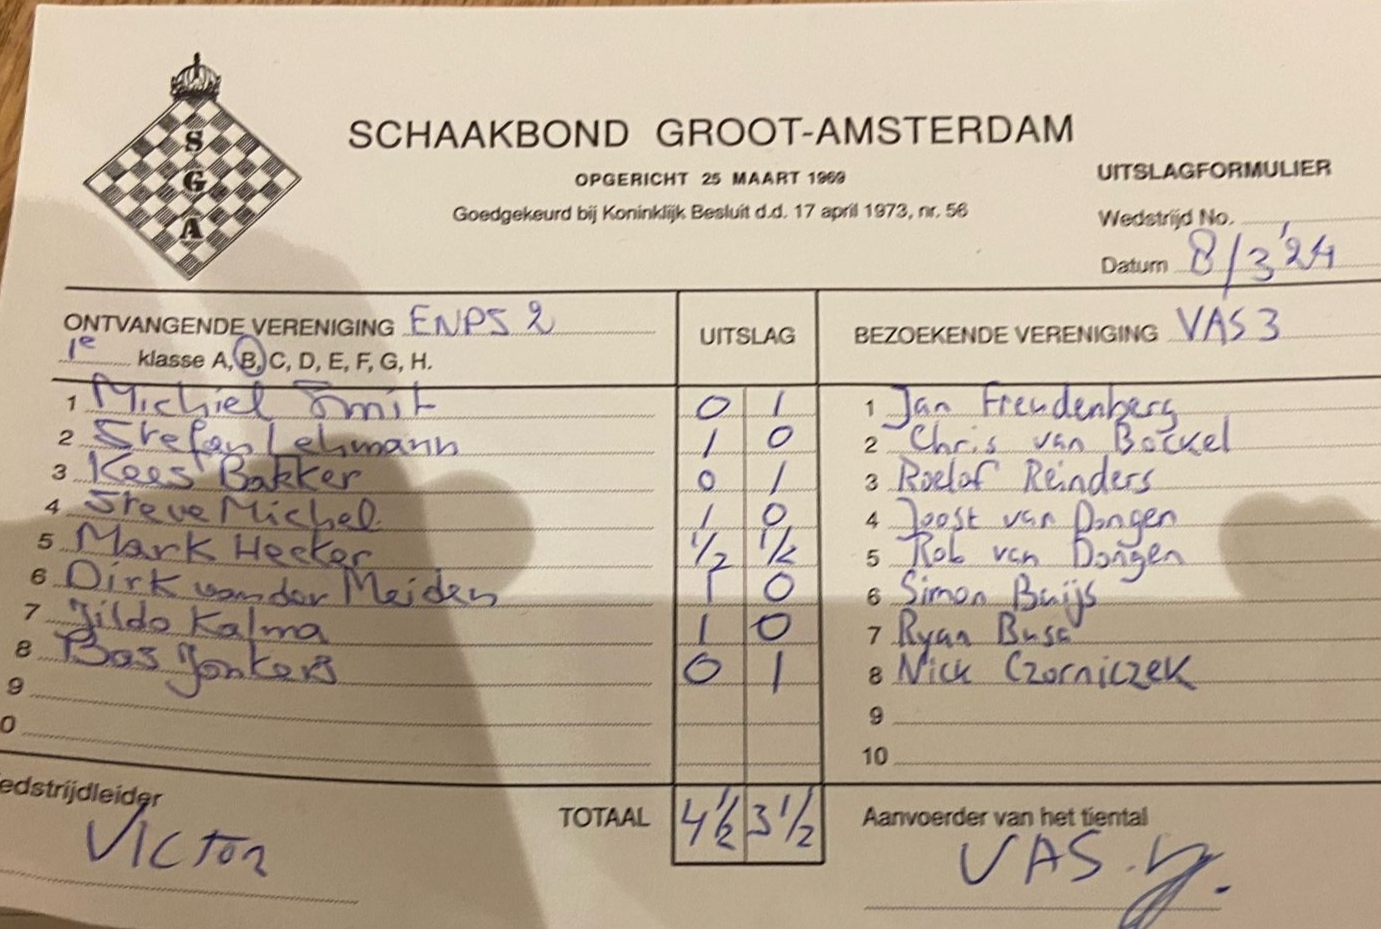 S
G
A
SCHAAKBOND GROOT-AMSTERDAM
OPGERICHT 25 MAART 1969
Goedgekeurd bij Koninklijk Besluit d.d. 17 april 1973, nr. 56
UITSLAGFORMULIER
Wedstrijd No.
Datum 8/3 '24
ONTVANGENDE VERENIGING ENPS 2
1e klasse A, B, C, D, E, F, G, H.
UITSLAG
BEZOEKENDE VERENIGING VAS 3
1 Michiel Smit 0 1 1 Jan Freudenberg
2 Stefan Lehmann 1 0 2 Chris van Bockel
3 Kees Bakker 0 1 3 Roelof Reinders
4 Steve Michel 1 0 4 Joost van Dongen
5 Mark Hecker 1/2 1/2 5 Rob van Dongen
6 Dirk van der Meiden 1 0 6 Simon Buijs
7 Jildo Kalma 1 0 7 Ryan Busc
8 Bas Jonkers 0 1 8 Nick Czorniczek
9 9
0 10
edstrijdleider
Victor
TOTAAL 4 1/2 3 1/2
Aanvoerder van het tiental
VAS.